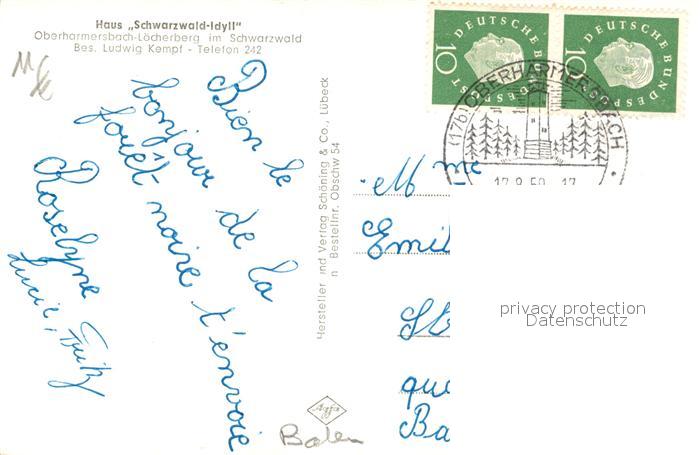 Haus „Schwarzwald-Idyll"
Oberharmersbach-Löcherberg im Schwarzwald
Bes. Ludwig Kempf - Telefon 242
Bien le
bonjour de la
forêt-noire t'envoie
Roselyne
Lucie, Fritz
Hersteller und Verlag Schöning & Co., Lübeck
Bestellnr. Obschw 54
Agfa
Baden
10 DEUTSCHE BUNDESPOST
10 DEUTSCHE BUNDESPOST
(17b) OBERHARMERSBACH
M me
Emil
St
que
Ba
privacy protection
Datenschutz